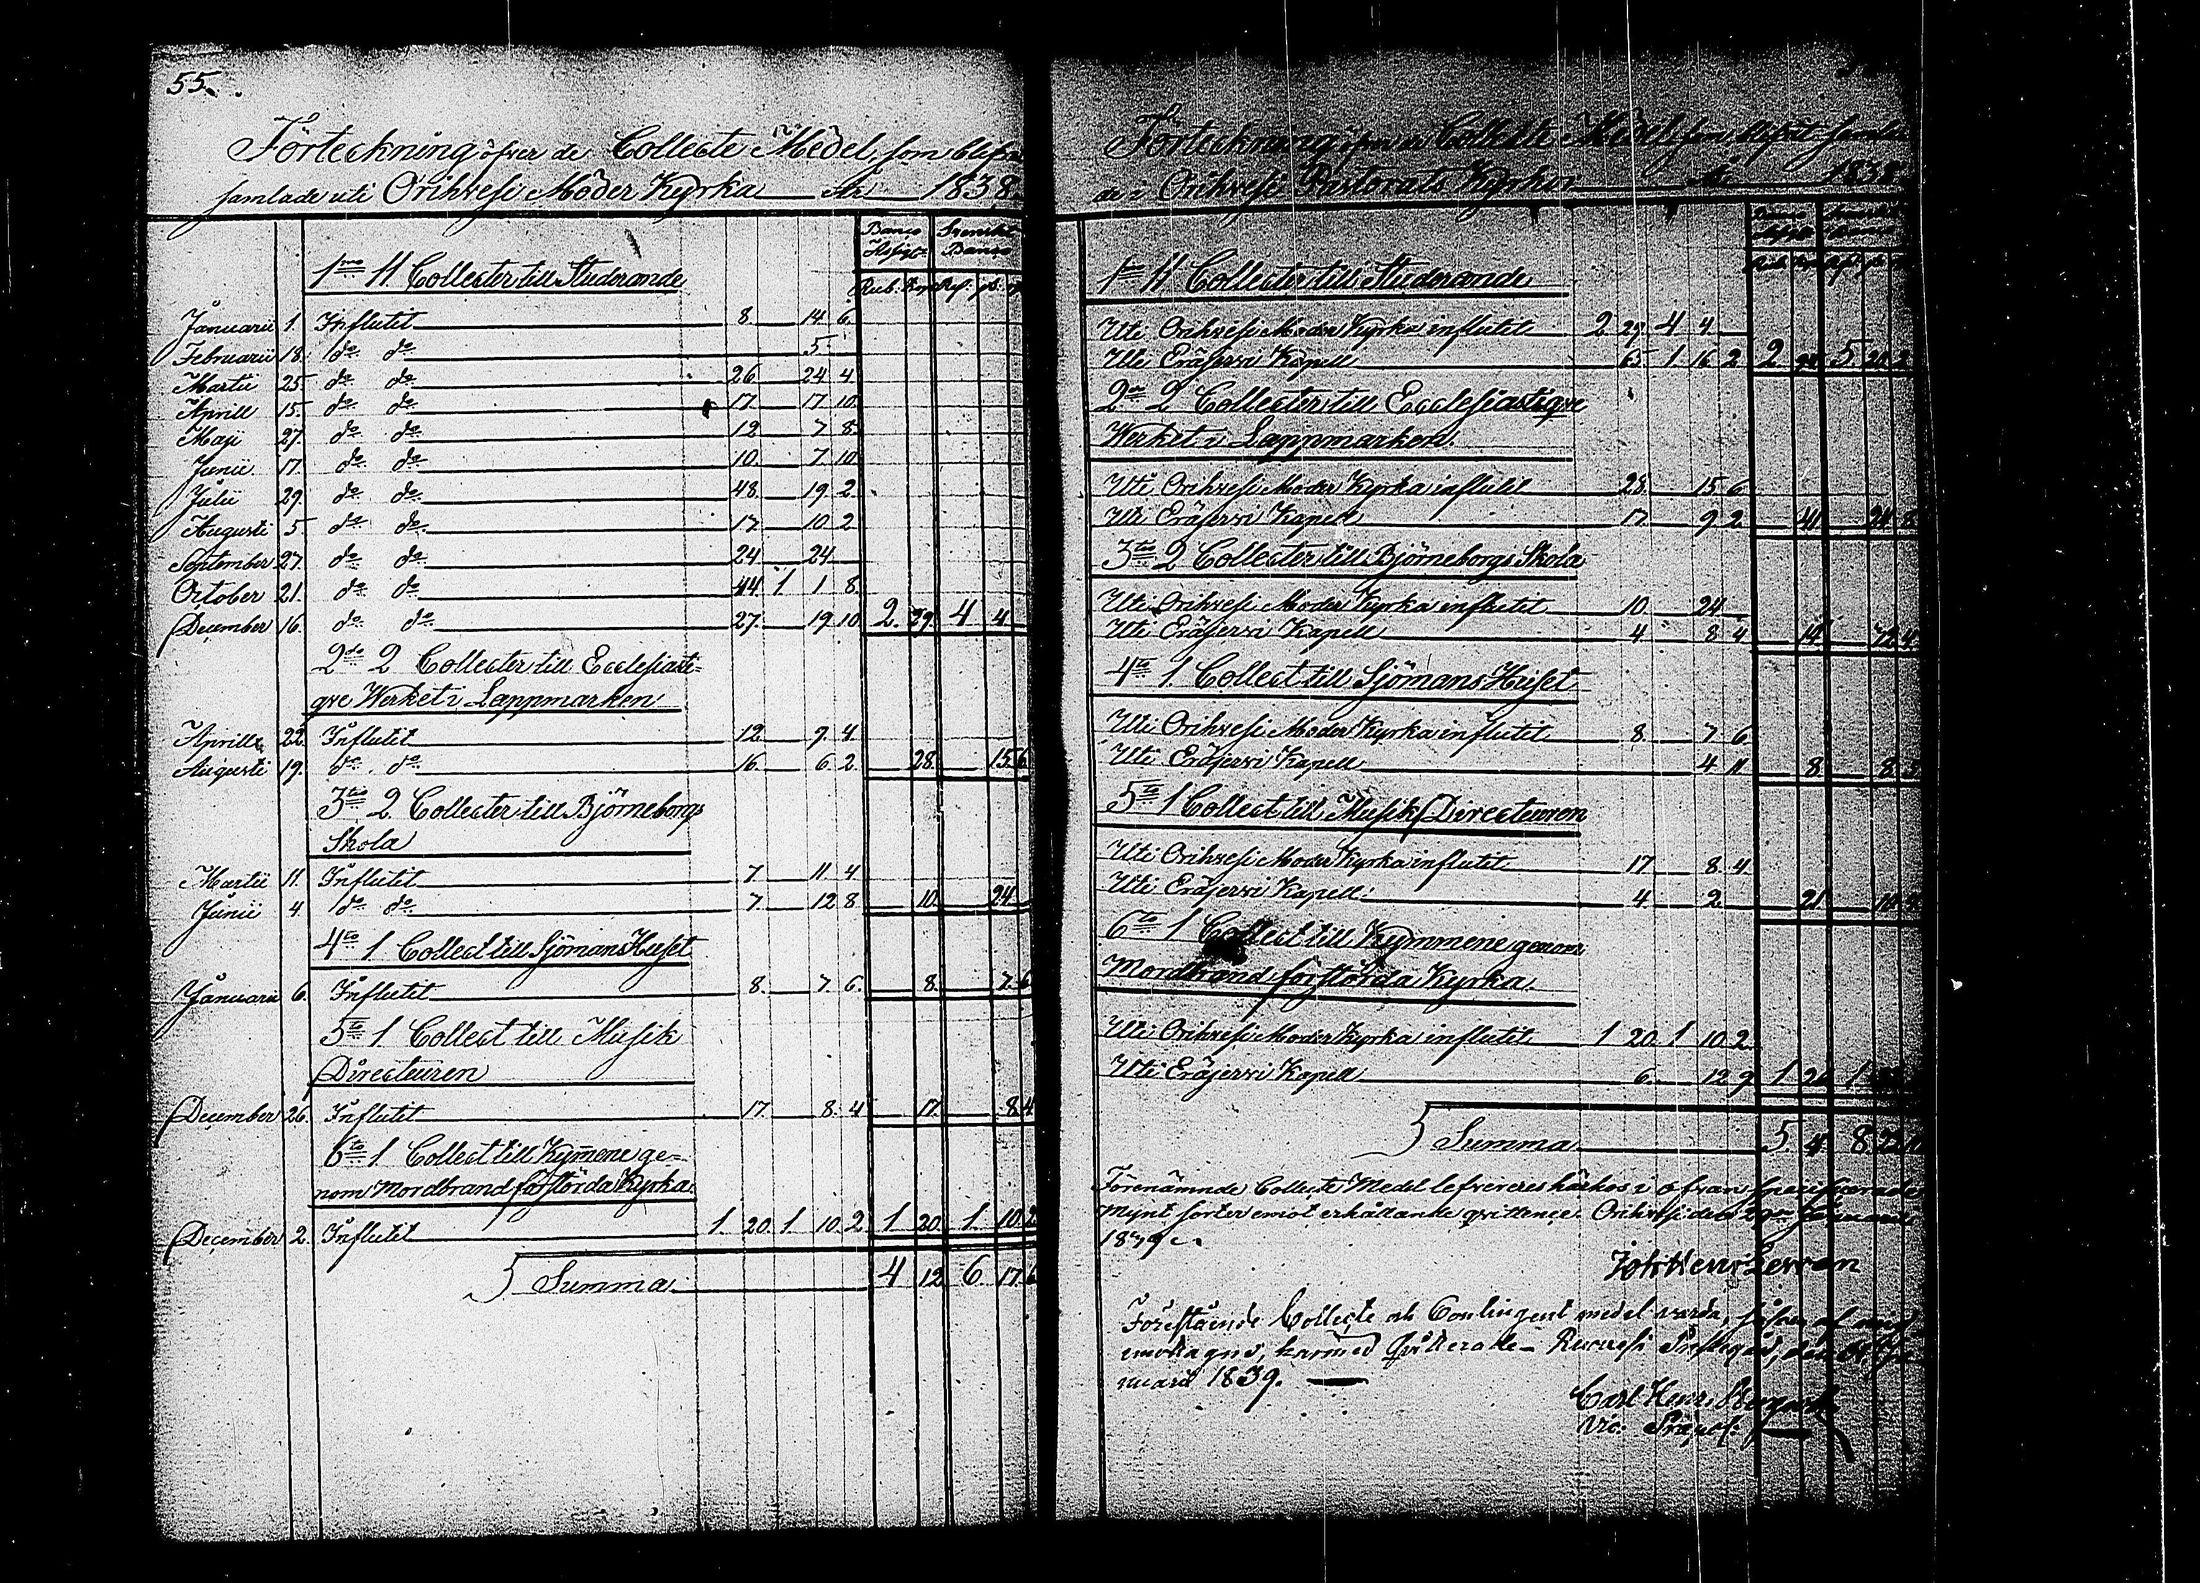 55.
Förteckning öfver de Collecte Medel, som blifvit
samlade uti Orihvesi Moder Kyrka År 1838
Banco Assign. Svenskt Banco
1mo 11 Collecter till Studerande Rub. Kop. Rd. sk. r
Januarii 1. Influtit 8. 14 6
Februarii 18. do do 5.
Martii 25 do do 26 24 4
Aprill 15. do do 17. 17 10
Maji 27. do do 12 7 8
Junii 17. do do 10. 7. 10
Julii 29. do do 48. 19 2
Augusti 5. do do 17. 10 2
September 27. do do 24 24
October 21. do do 44. 1 1 8.
December 16. do do 27. 19 10 2. 29. 4 4
2do 2 Collecter till Ecclesiasti-
que Werket i Lappmarken
Aprill 22. Influtit 12 9 4
Augusti 19. do do 16. 6 2 28. 15 6
3tio 2 Collecter till Björneborgs
Skola
Martii 11. Influtit 7. 11 4
Junii 4. do do 7. 12 8 10. 24
4to 1 Collect till Sjömans Huset
Januarii 6. Influtit 8. 7. 6. 8. 7. 6
5to 1 Collect till Musik
Directeuren
December 26. Influtit 17. 8. 4 17. 8 4
6to 1 Collect till Kymmene ge-
nom Mordbrand förstörda Kyrka
December 2. Influtit 1. 20. 1 10. 2 1 20. 1. 10. 2
Summa 4 12 6. 17 6
Förteckning öfver de Collecte Medel som blifvit samla
de i Orihvesi Pastorats Kyrkor År 1838
1mo 11 Collecter till Studerande
Uti Orihvesi Moder Kyrka influtit 2 29. 4 4.
Uti Eräjervi Kapell 65. 1. 16 2 2 94 5. 20. 2
2do 2 Collecter till Ecclesiastique
Werket i Lappmarken
Uti Orihvesi Moder Kyrka influtit 28. 15 6
Uti Eräjervi Kapell 17. 9 2
3tio 2 Collecter till Björneborgs Skola
Uti Orihvesi Moder Kyrka influtit 10. 24
Uti Eräjervi Kapell 4. 8 4 14
4to 1 Collect till Sjömans Huset
Uti Orihvesi Moder Kyrka influtit 8. 7 6
Uti Eräjervi Kapell 4 11 8
5to 1 Collect till Musik Directeuren
Uti Orihvesi Moder Kyrka influtit 17 8. 4
Uti Eräjervi Kapell 4. 2 21
6to 1 Collect till Kymmene genom
Mordbrand förstörda Kyrka.
Uti Orihvesi Moder Kyrka influtit 1 20. 1 10. 2
Uti Eräjervi Kapell 6. 12 9 1 26 1
Summa 5. 4 8.
Förenämnde Collecte Medel lefvereras härhos i ofvan specificerade
Mynt sorter emot erhållande qvittence. Orihvesi den
1839
Joh Henr Levvon
Förestående Collecte och Contingent medel varda, såsom af mig
emottagne, härmed qvitterade. Ruovesi Prestegård, den
nuarii 1839.
Carl Henr.
Vic. Præpos.